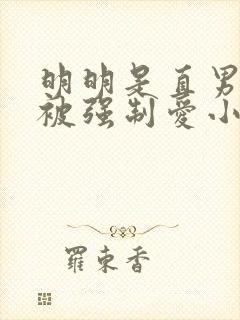 明明是直男
被强制爱小
羅東香